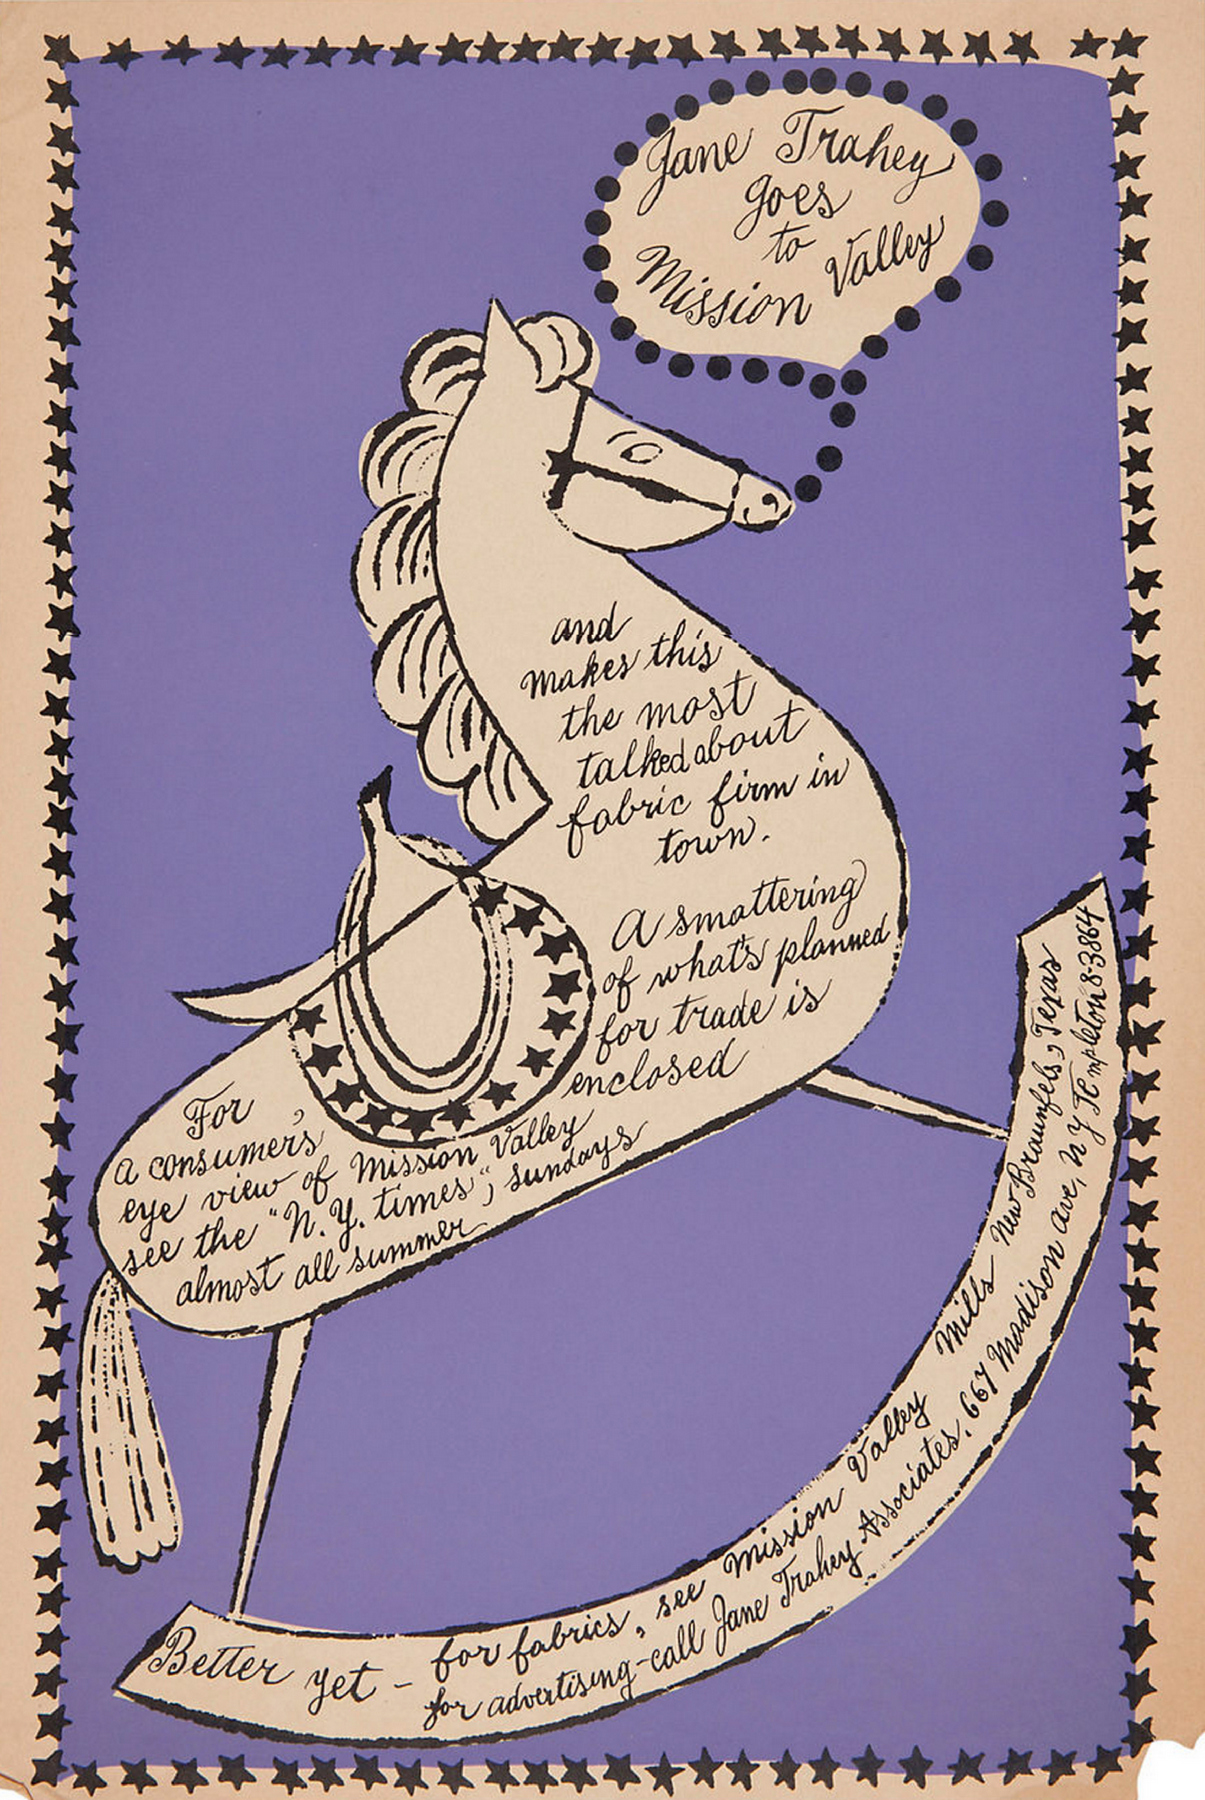 Jane Trahey
goes
to
Mission Valley
and
makes this
the most
talked about
fabric firm in
town.
A smattering
of what's planned
for trade is
enclosed
For
a consumer's
eye view of Mission Valley
see the "N.Y. times", sundays
almost all summer
Better yet - for fabrics, see Mission Valley Mills New Braunfels, Texas
for advertising - call Jane Trahey Associates. 667 Madison ave, NY TEmpleton 8-3864